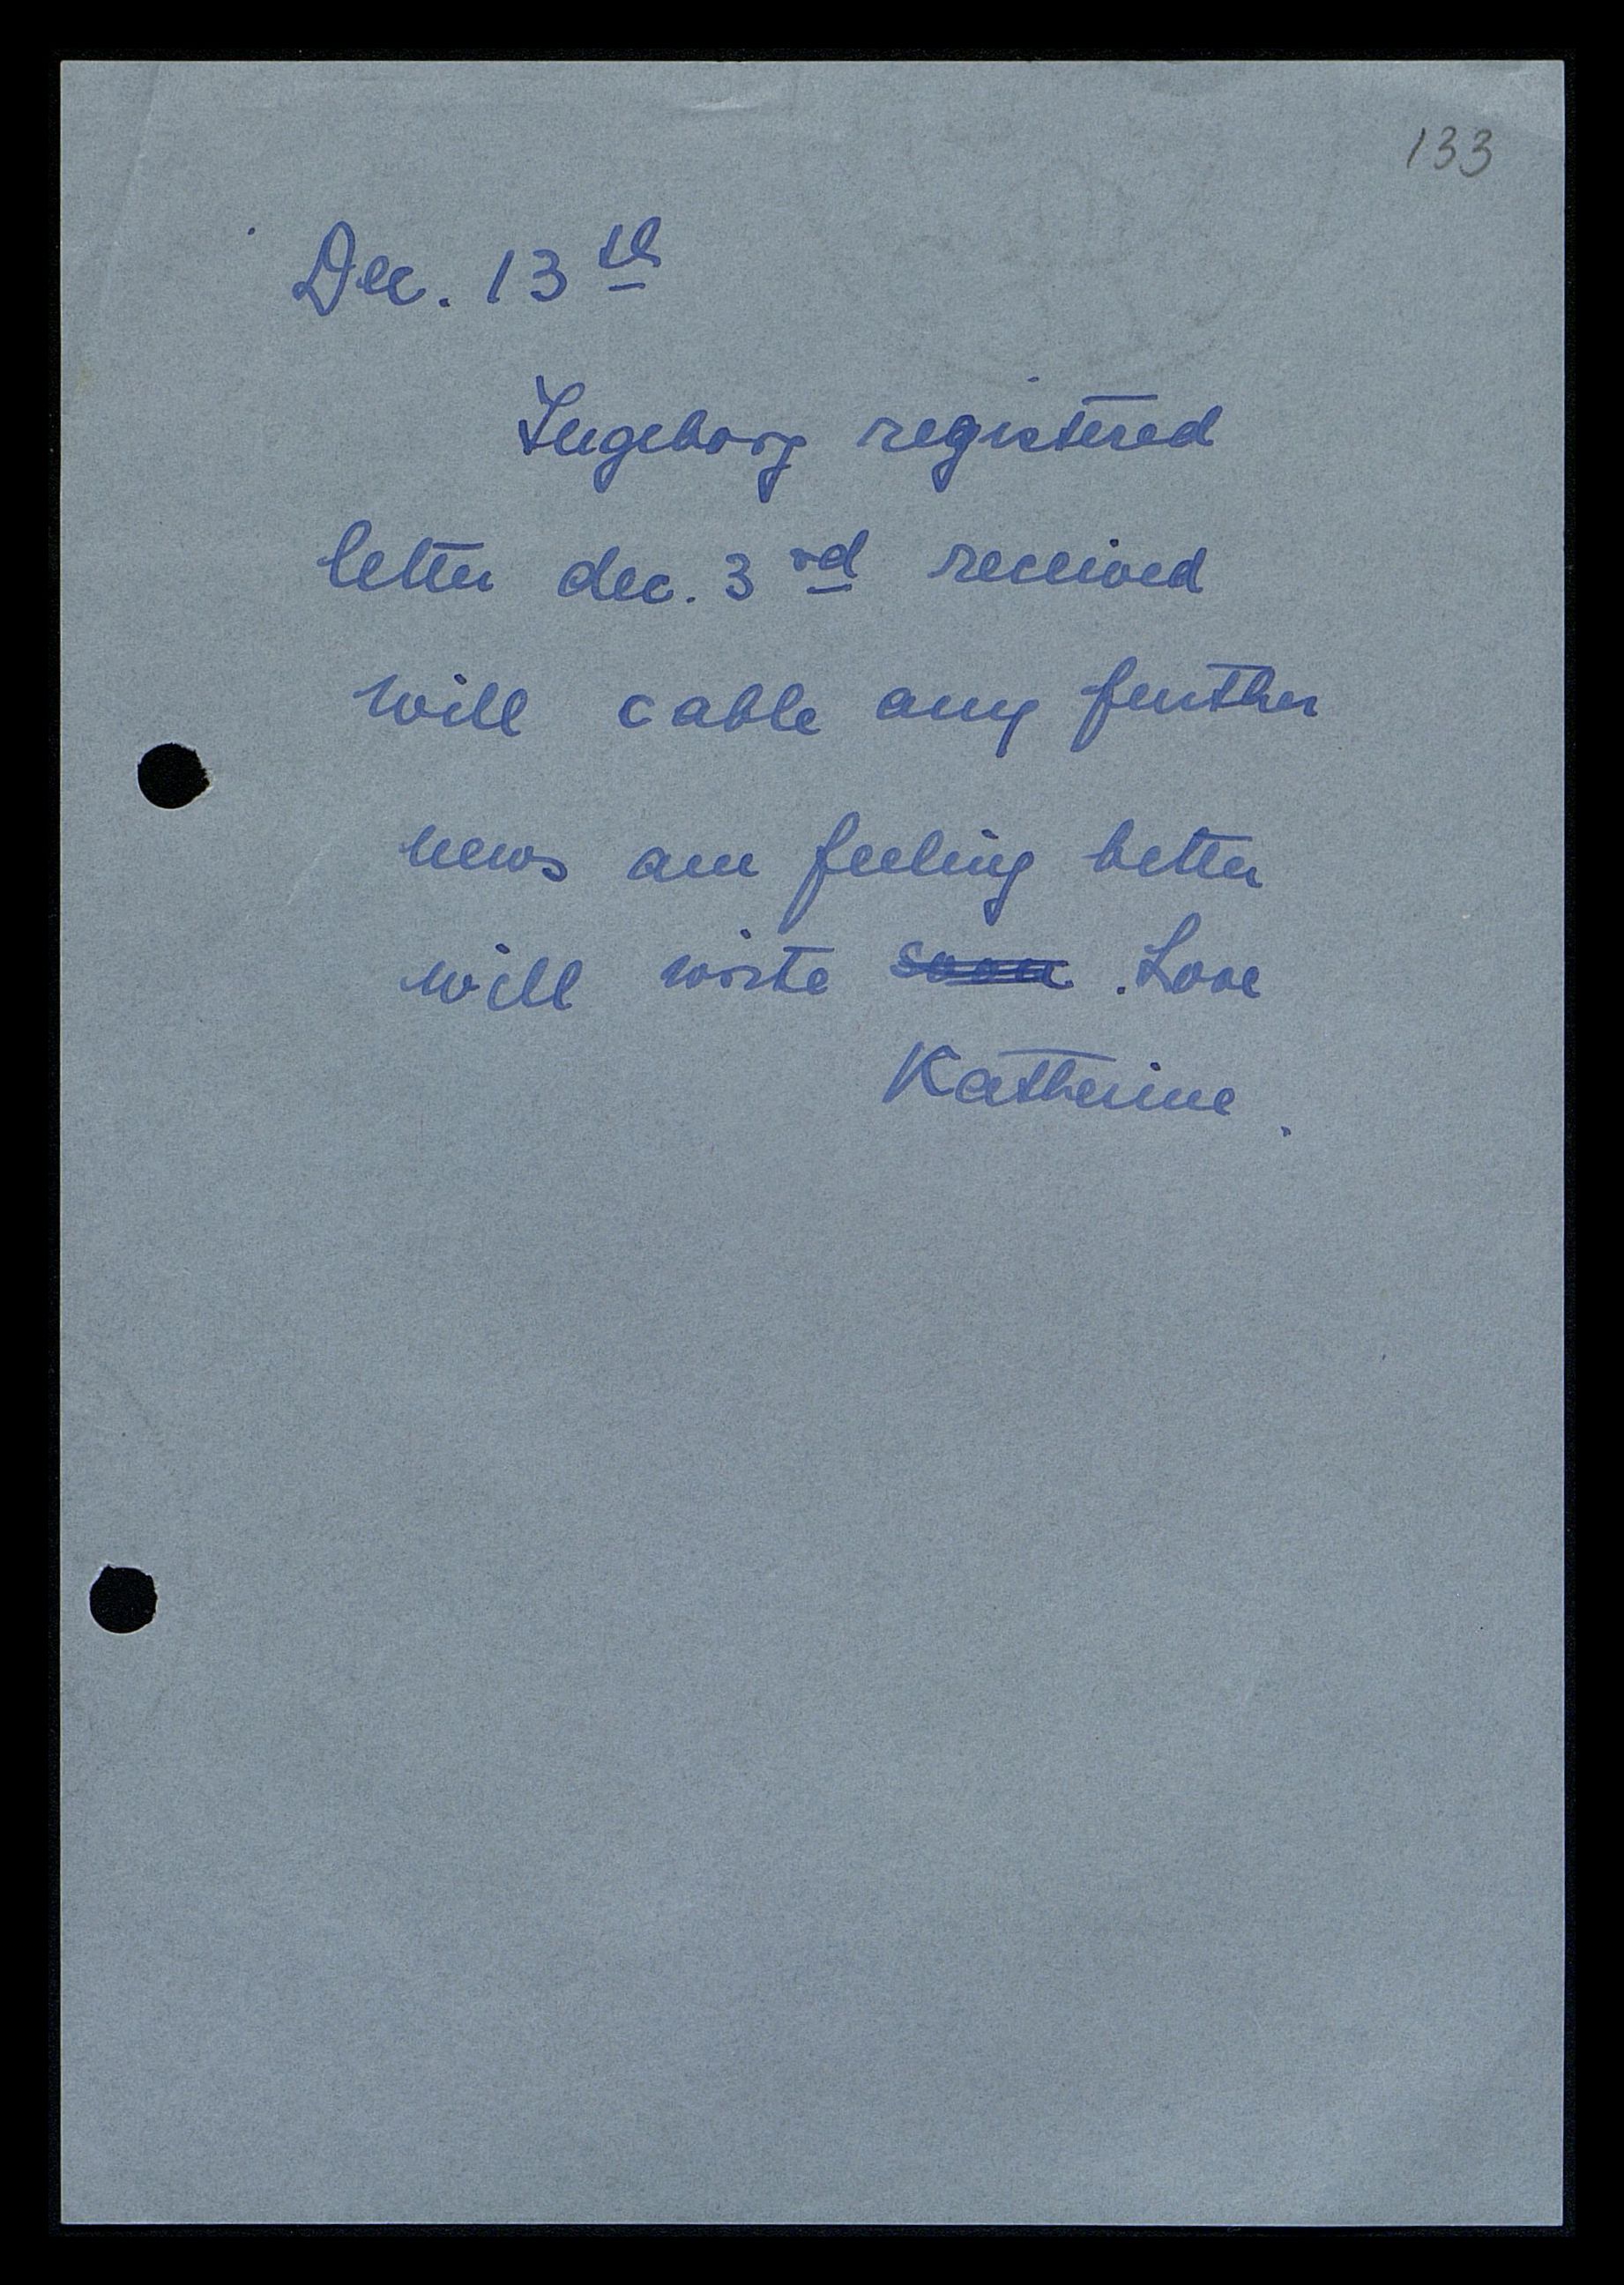 133
Dec. 13th
Ingeborg registered
letter dec. 3rd received
will cable any further
news am feeling better
will write soon . Love
Katherine .